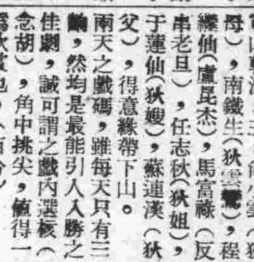 母),南鐵生(狄雲鸞),程
繼仙(盧昆杰),馬富祿(反
串老旦),任志秋(狄姐),
于蓮仙(狄嫂),蘇連漢(狄
父),得意緣帶下山。
兩天之戲碼,雖每天只有三
齣,然均是最能引人入勝之
佳劇,誠可謂之戲內選核(
念胡),角中挑尖,値得一